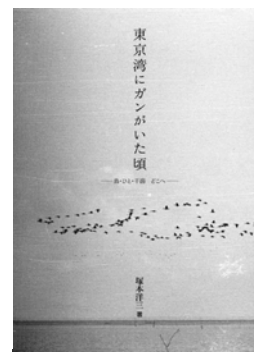 東京湾にガンがいた頃
——鳥・ひと・干潟 どこへ——
塚本洋三 著